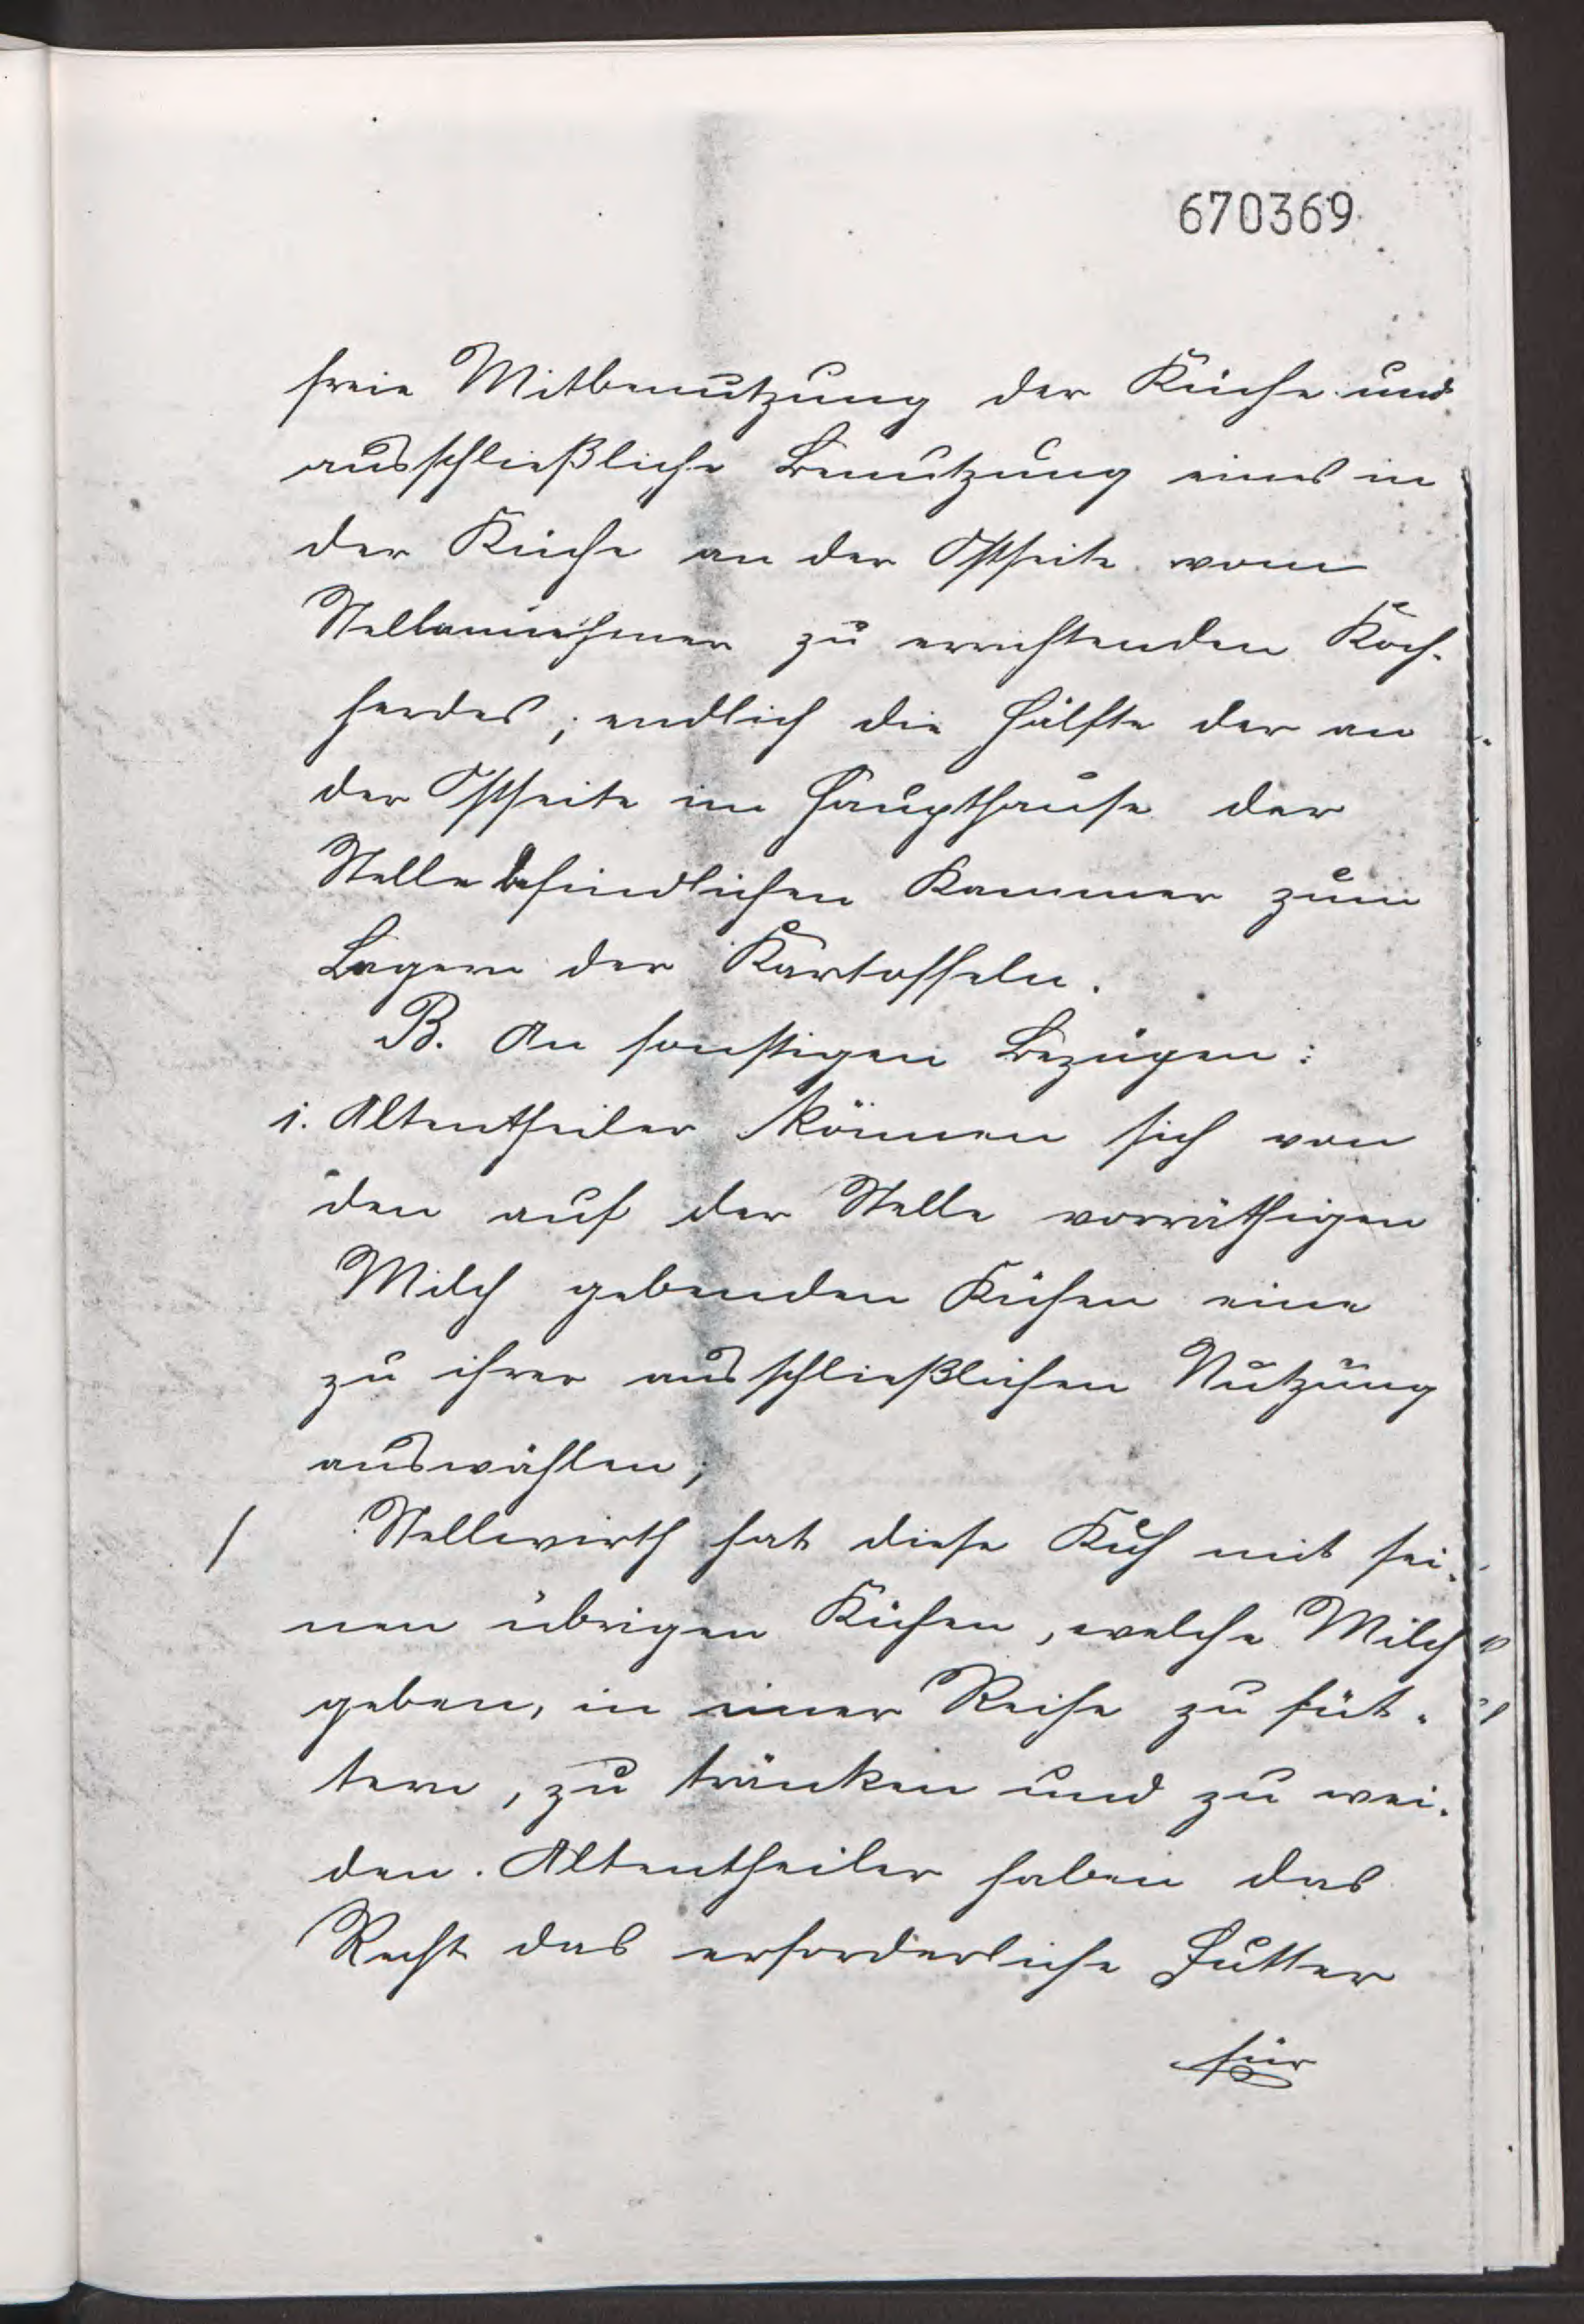 670369
freie Mitbenutzung der Küche und
ausschließliche Benutzung eines in
der Küche an der Ostseite vom
Stellannehmer zu errichtenden Koch-
herdes, endlich die Hälfte der an
der Ostseite im Haupthause der
Stelle befindlichen Kammer zum
Lagern der Kartoffeln.
B. An sonstigen Bezügen:
1. Altentheiler können sich von
den auf der Stelle vorräthigen
Milch gebenden Kühen eine
zu ihrer ausschließlichen Nutzung
auswählen;
Stellwirth hat diese Kuh mit sei-
nen übrigen Kühen, welche Milch
geben, in einer Reihe zu füt-
tern, zu tränken und zu wei-
den. Altentheiler haben das
Recht das erforderliche Futter
für